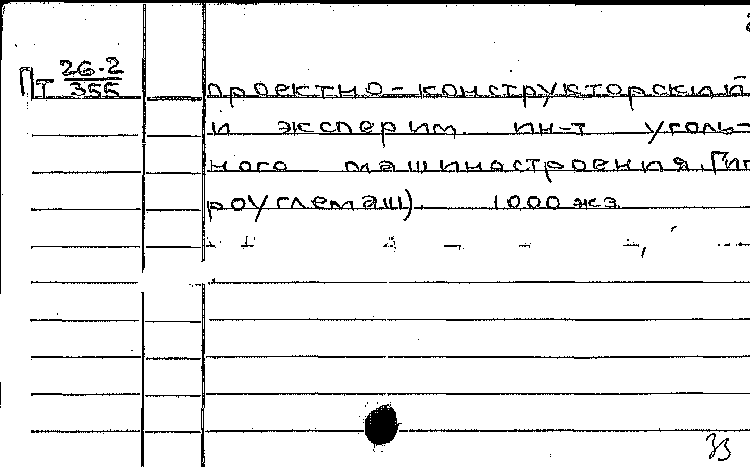 ПТ 26.2
355
проектно-конструкторский
и эксперим. ин-т уголь-
ного машиностроения (Гип
роуглемаш). 1000 экз.
33